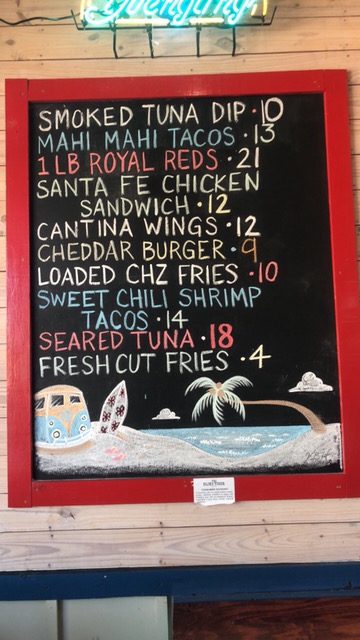 SMOKED TUNA DIP · 10
MAHI MAHI TACOS · 13
1 LB ROYAL REDS · 21
SANTA FE CHICKEN
SANDWICH · 12
CANTINA WINGS · 12
CHEDDAR BURGER · 9
LOADED CHZ FRIES · 10
SWEET CHILI SHRIMP
TACOS · 14
SEARED TUNA · 18
FRESH CUT FRIES · 4